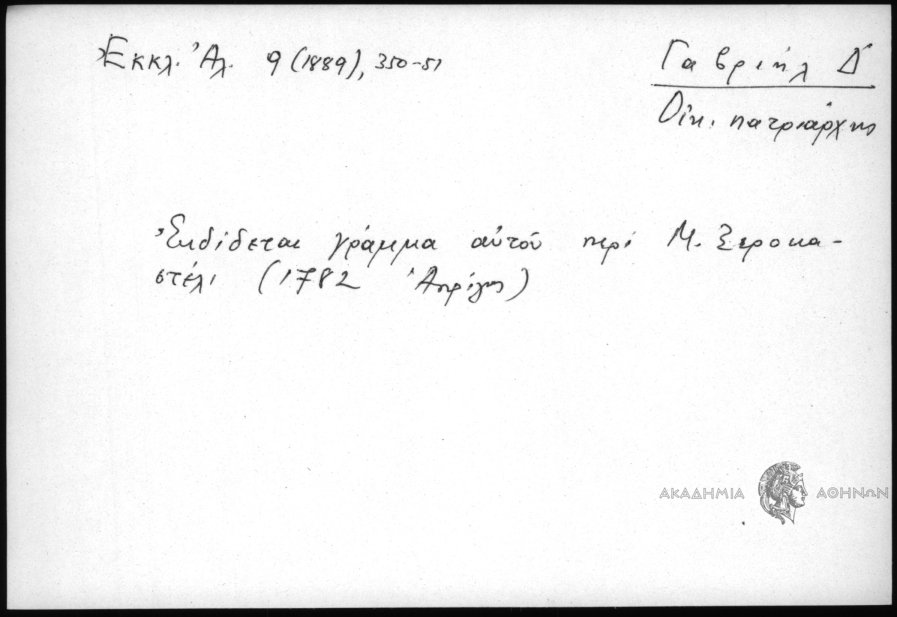 Ἐκκλ. Ἀλ. 9 (1889), 350-51
Γαβριήλ Δ΄
Οἰκ. πατριάρχης
Ἐκδίδεται γράμμα αὐτοῦ περί Μ. Ξεροκα-
στέλι (1782 Ἀπρίλης)
ΑΚΑΔΗΜΙΑ ΑΘΗΝΩΝ